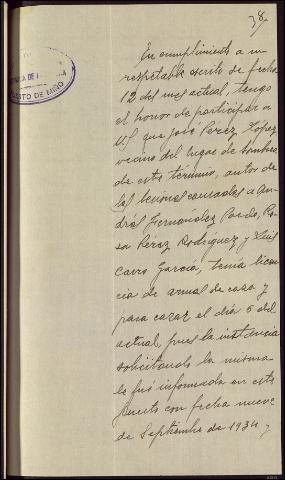 38
En cumplimiento a su
respetable escrito de fecha
12 del mes actual, tengo
el honor de participar a
US que José Pérez López
vecino del lugar de
de este término, autor de
las lesiones causadas a An-
drés Hernández Pardo, Ro-
sa Pérez Rodríguez y Luis
Carro García, tenía licen-
cia de armas de caza y
para cazar el día 5 del
actual, pues la instancia
solicitando la misma
le fué informada en este
puesto con fecha nueve
de Septiembre de 1934 y
PUESTO DE